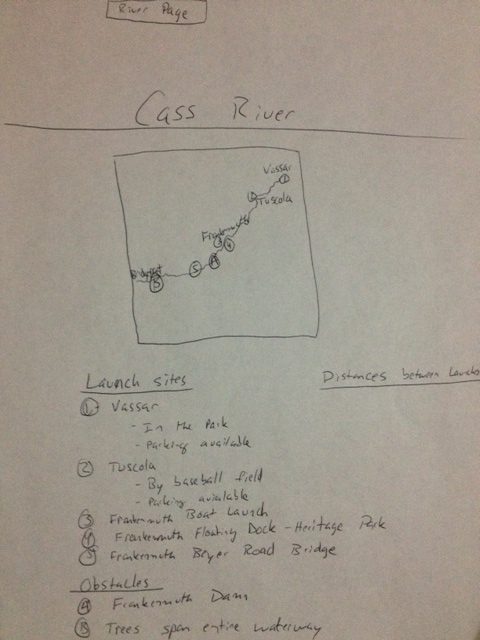 River Page
Cass River
Vassar
1
2
Tuscola
Frankenmuth
3 4
A
5
B
Launch sites
Distances between Launches
1 Vassar
- In the Park
- Parking available
2 Tuscola
- By baseball field
- Parking avialable
3 Frankenmuth Boat Launch
4 Frankenmuth Floating Dock - Heritage Park
5 Frankenmuth Beyer Road Bridge
Obstacles
A Frankenmuth Dam
B Trees span entire waterway